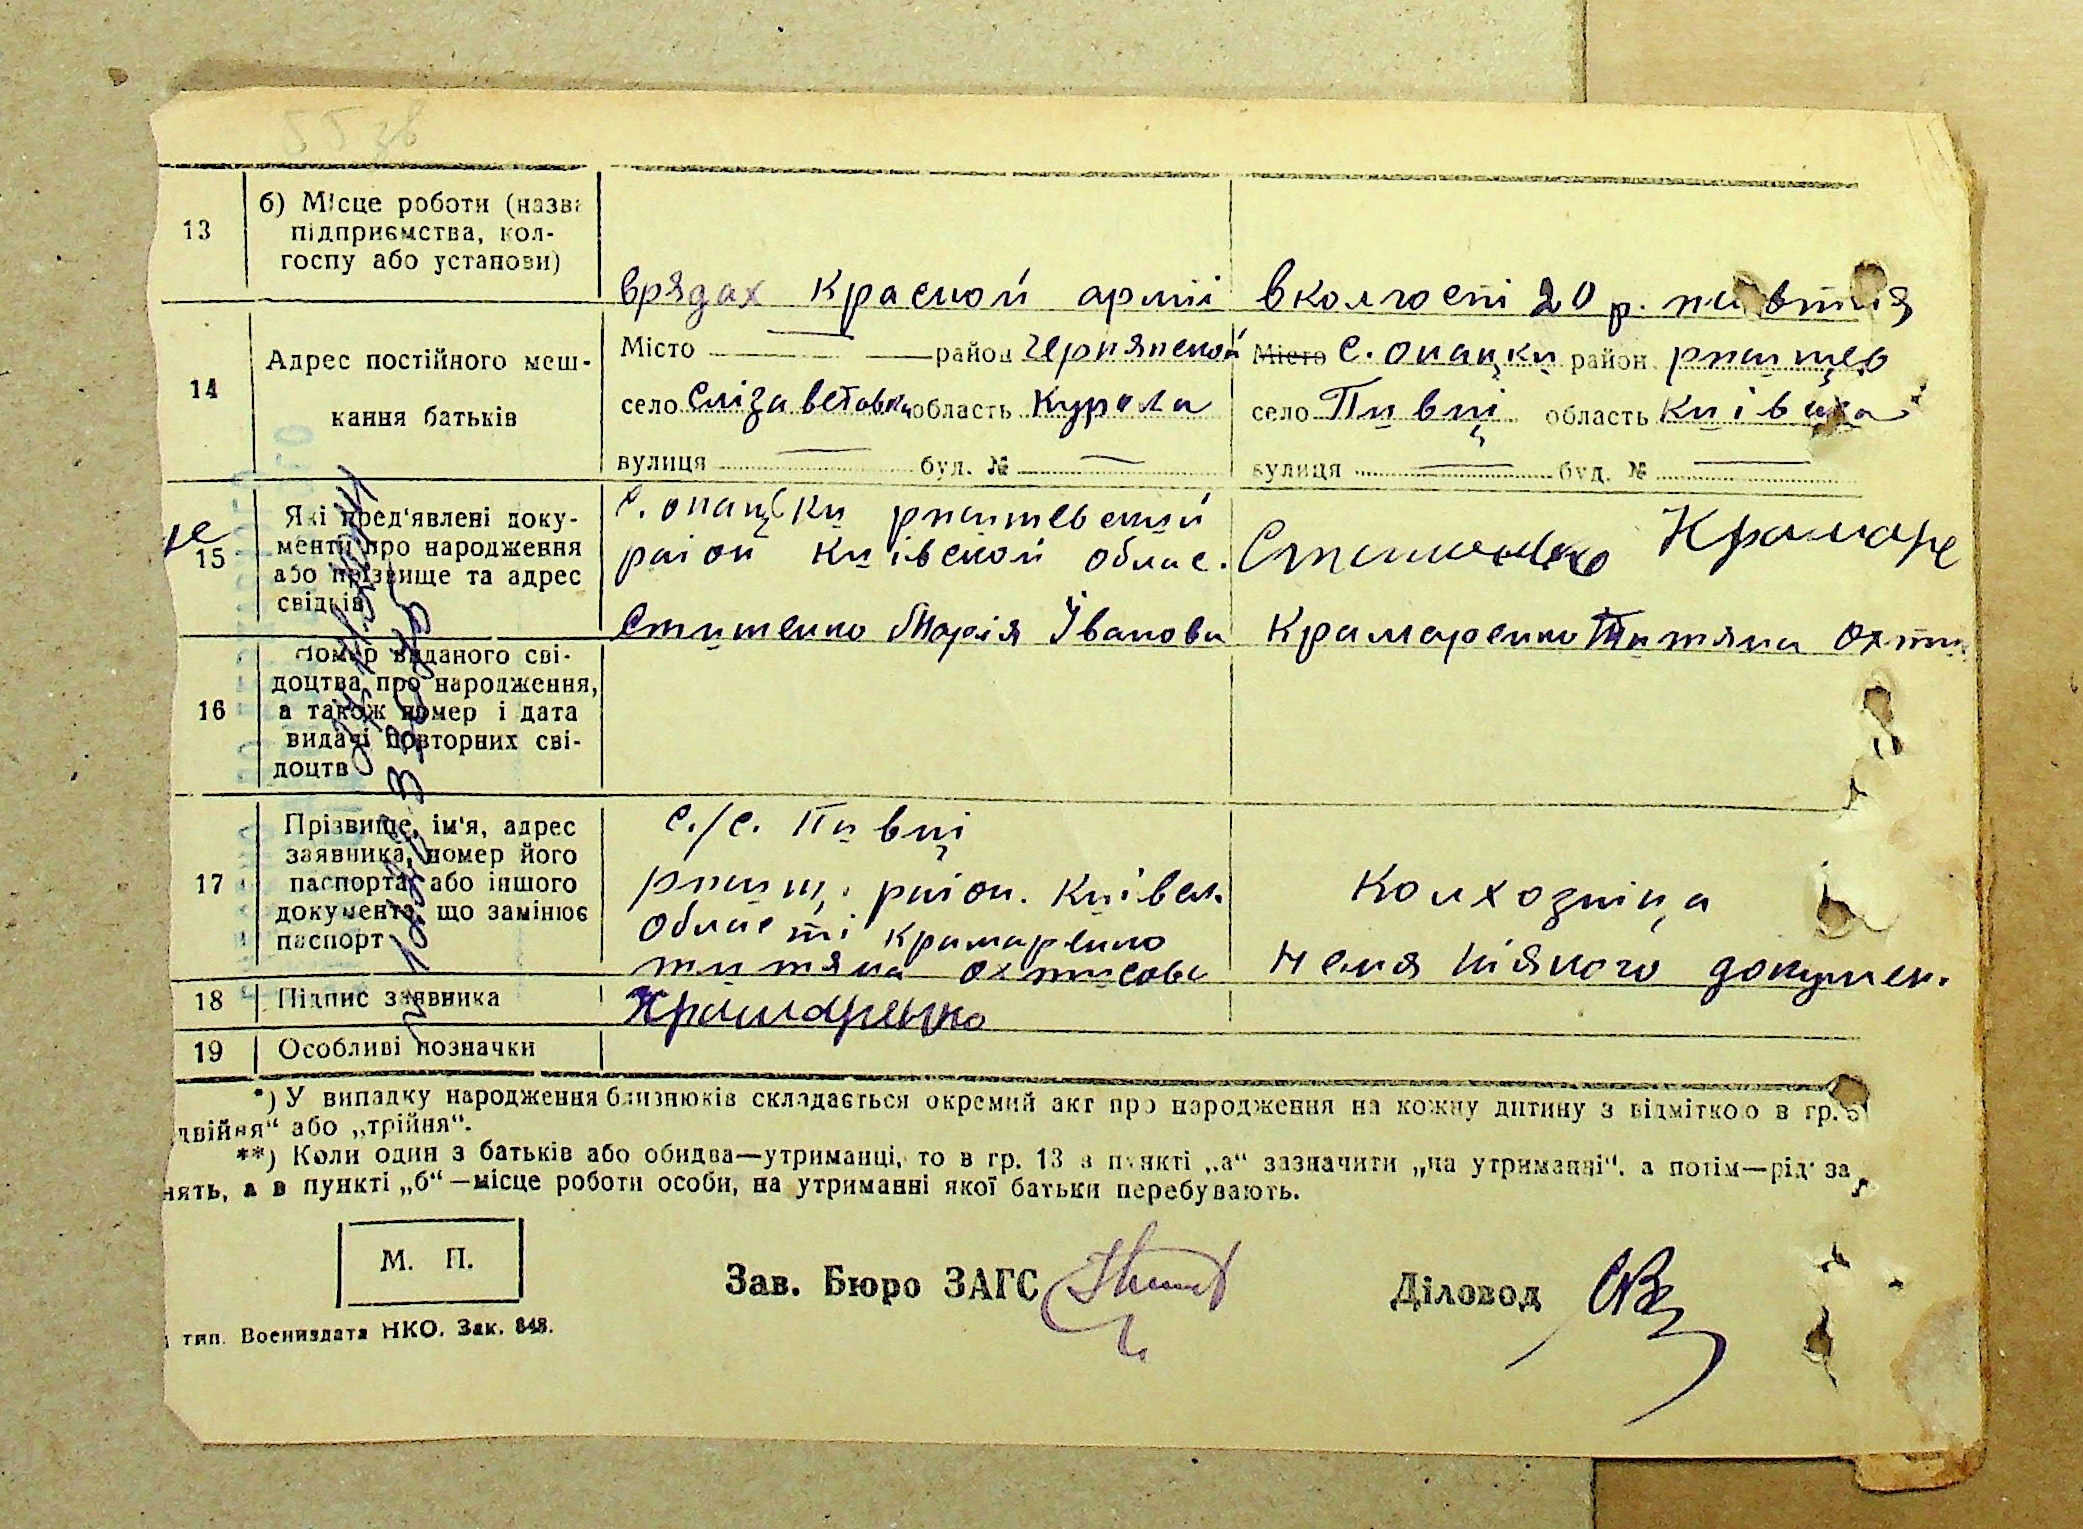 13
б) Місце роботи (назва
підприємства, кол-
госпу або установи)
врядах Красной армії
в колгоспі 20 р. жовтня
14
Адрес постійного меш-
кання батьків
Місто район Чернянской
село Єлізаветовка область Курска
вулиця буд. №
Місто с. опачки район ржищев
село Пивці область Київска
вулиця буд. №
15
Які пред'явлені доку-
менти про народження
або прізвище та адрес
свідків
с. опачки ржищевский
район Київской облас.
Стищенко Марія Іванова
Крамаре
Крамаренко Титяна Охти
16
Номер виданого сві-
доцтва про народження,
а також номер і дата
видачі повторних сві-
доцтв
17
Прізвище, ім'я, адрес
заявника, номер його
паспорта або іншого
документа, що замінює
паспорт
с./с. Пивці
ржищ. район. Київск.
області Крамаренко
титяна охтисова
Колхозніца
немя ніякого докумен.
18
Підпис заявника
Крамаренко
19
Особливі позначки
*) У випадку народження близнюків складається окремий акт про народження на кожну дитину з відміткою в гр. 5
двійня“ або „трійня“.
**) Коли один з батьків або обидва—утриманці, то в гр. 13 в пункті „а“ зазначити „на утриманні“, а потім—рід за
нять, а в пункті „б“—місце роботи особи, на утриманні якої батьки перебувають.
М. П.
Зав. Бюро ЗАГС
Діловод
тип. Воениздата НКО. Зак. 848.